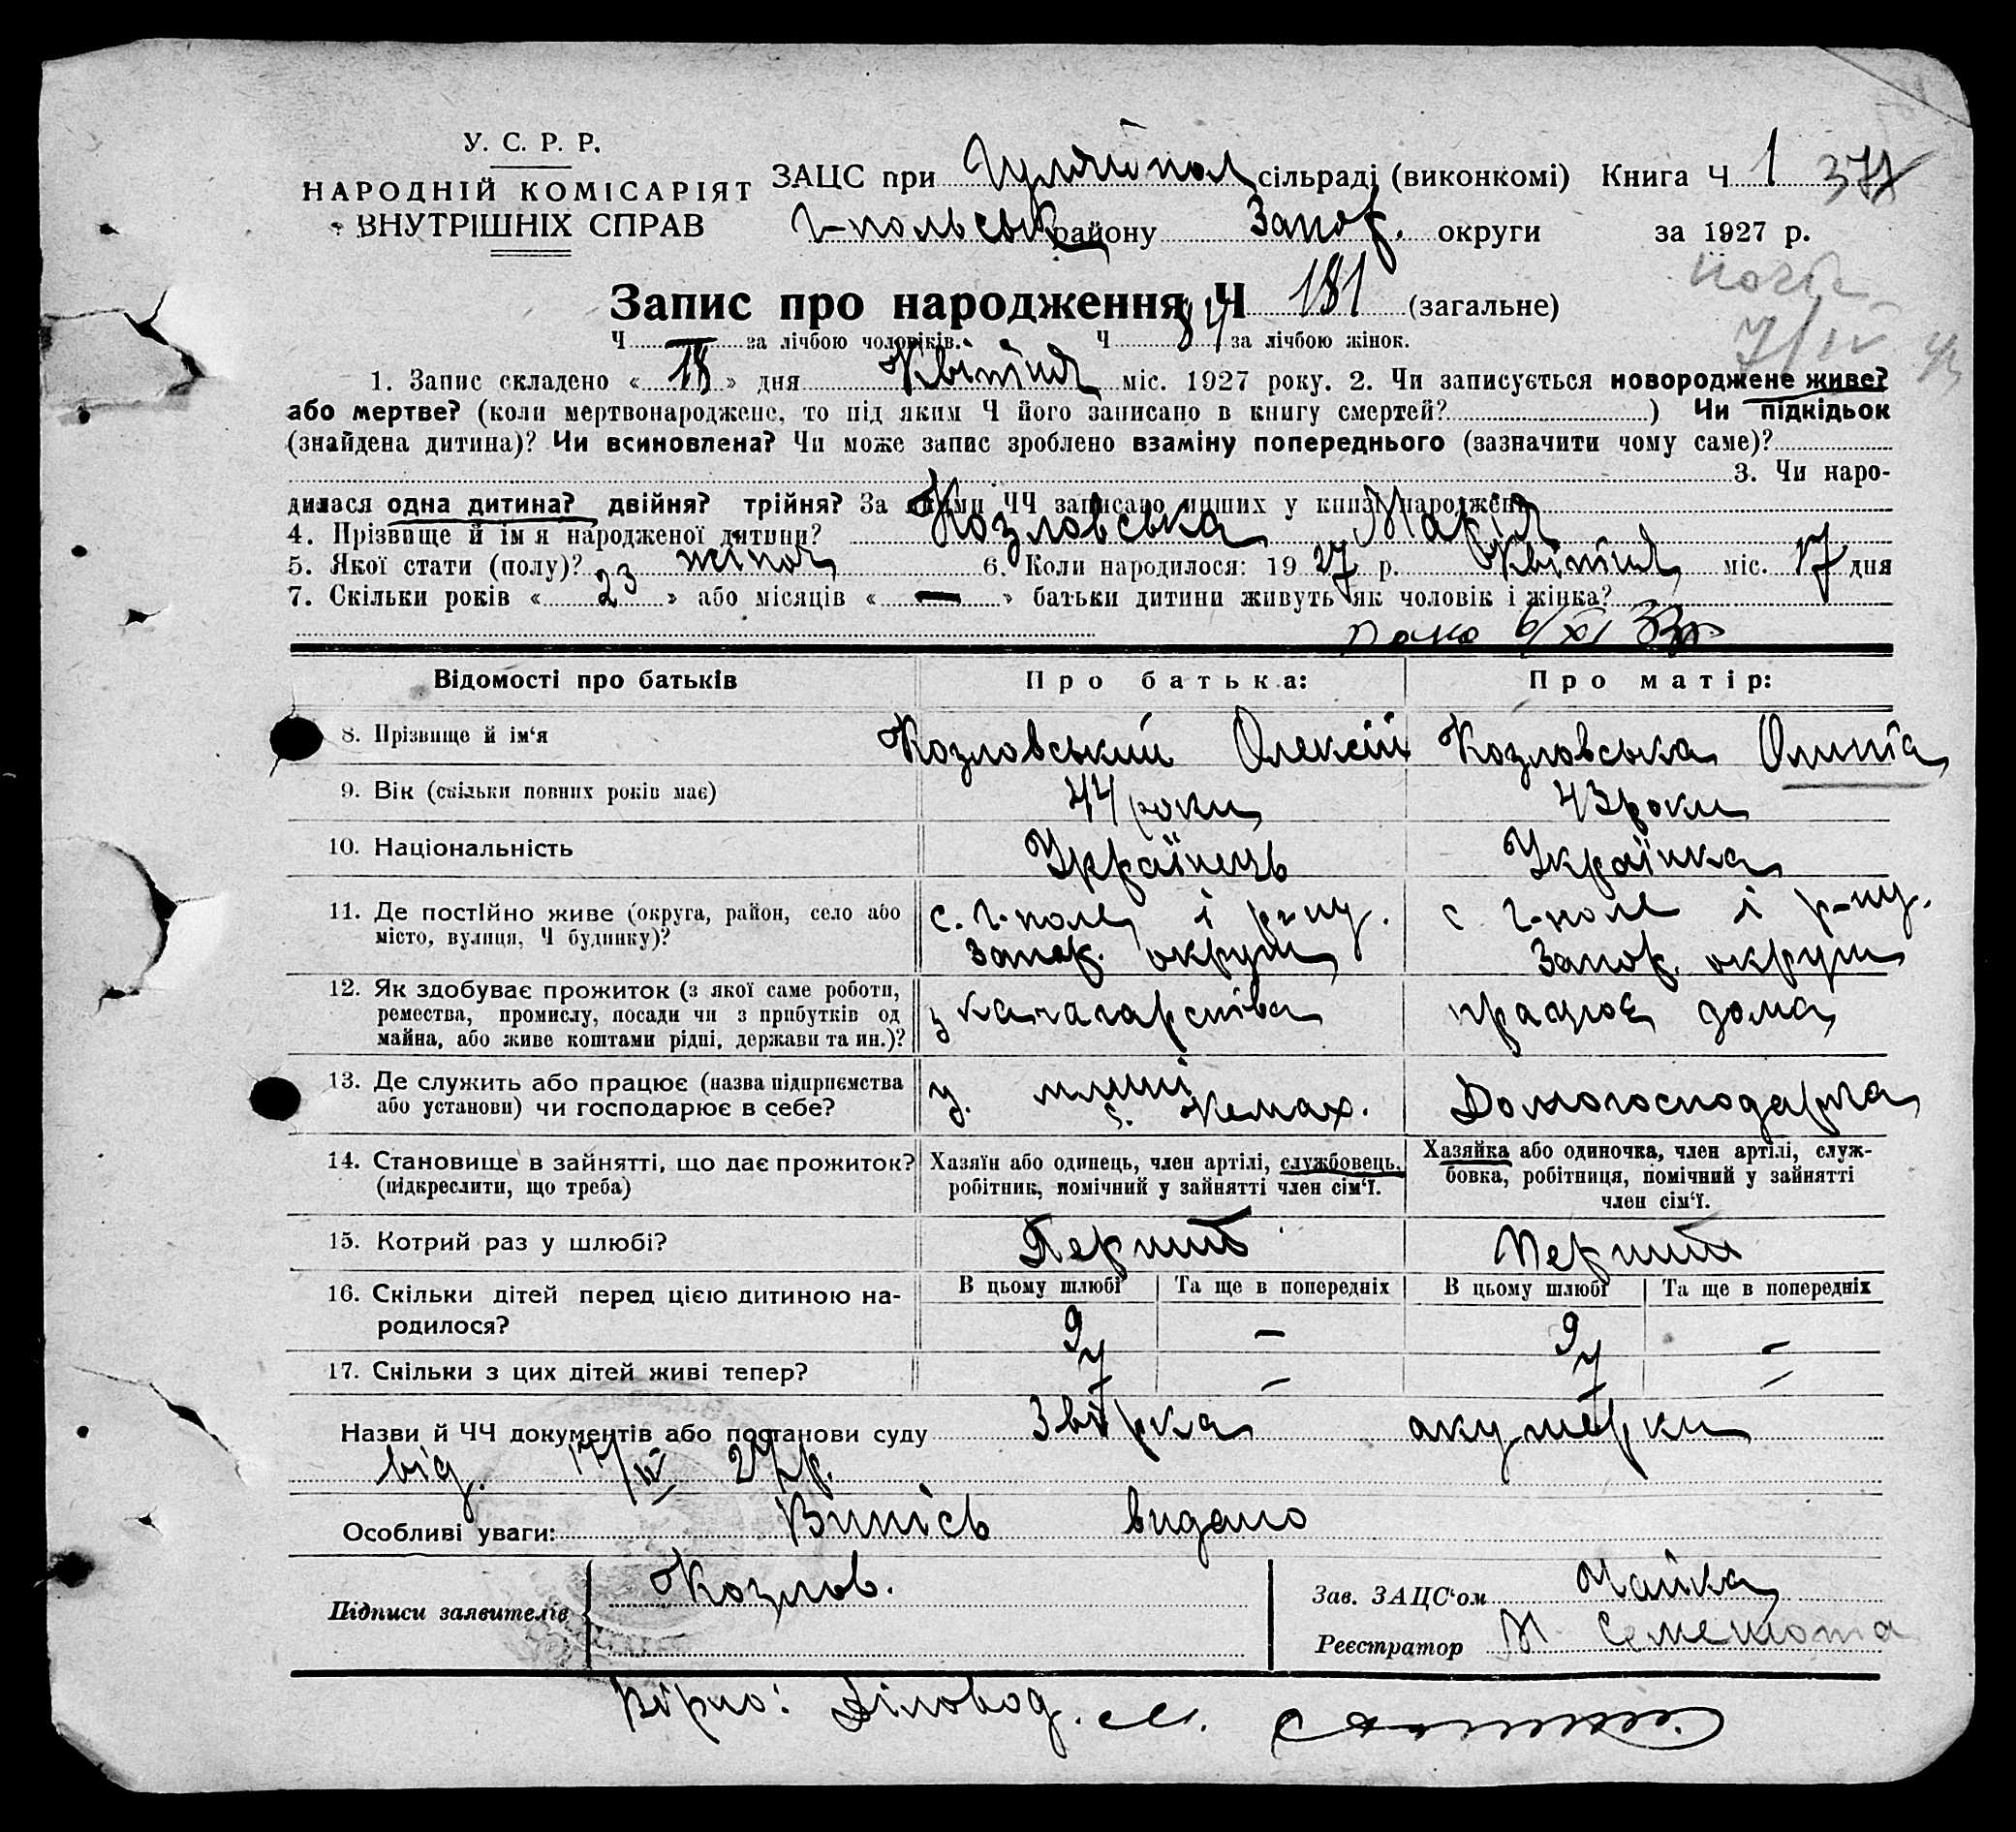 У. С. Р. Р.
НАРОДНІЙ КОМІСАРІЯТ
ВНУТРІШНІХ СПРАВ
ЗАЦС при Гуляйпол сільраді (виконкомі) Книга Ч 1 377
г-польськ району Запор. округи за 1927 р.
Запис про народження Ч 181 (загальне)
Ч за лічбою чоловіків. Ч 84 за лічбою жінок.
1. Запис складено « 18 » дня Квітня міс. 1927 року. 2. Чи записується новороджене живе?
або мертве? (коли мертвонароджене, то під яким Ч його записано в книгу смертей? ) Чи підкідьок
(знайдена дитина)? Чи всиновлена? Чи може запис зроблено взаміну попереднього (зазначити чому саме)?
3. Чи наро-
дилася одна дитина? двійня? трійня? За якими ЧЧ записано инших у книзі народжень
4. Прізвище й ім'я народженої дитини? Козловська Марія
5. Якої стати (полу)? жіноч 6. Коли народилося: 1927 р. Квітня міс. 17 дня
7. Скільки років « 23 » або місяців « — » батьки дитини живуть як чоловік і жінка?
6/XI 33р.
Відомості про батьків Про батька: Про матір:
8. Прізвище й ім'я Козловський Олексій Козловська Олита
9. Вік (скільки повних років має) 44 роки 43 роки
10. Національність Українець Українка
11. Де постійно живе (округа, район, село або с. г-поле і р-ну. с г-поле і р-ну.
місто, вулиця, Ч будинку)? Запор. округи Запор. округи
12. Як здобуває прожиток (з якої саме роботи,
ремества, промислу, посади чи з прибутків од
майна, або живе коштами рідні, держави та ин.)? працює дома
13. Де служить або працює (назва підприємства у. млині
або установи) чи господарює в себе? с. Кемах. Домогосподарка
14. Становище в зайнятті, що дає прожиток? Хазяїн або одинець, член артілі, службовець, Хазяйка або одиночка, член артілі, служ-
(підкреслити, що треба) робітник, помічний у зайнятті член сім'ї. бовка, робітниця, помічний у зайнятті
член сім'ї.
15. Котрий раз у шлюбі? Перший Перший
В цьому шлюбі Та ще в попередніх В цьому шлюбі Та ще в попередніх
16. Скільки дітей перед цією дитиною на-
родилося? 9 — 9 —
17. Скільки з цих дітей живі тепер? 7 — 7 —
Назви й ЧЧ документів або постанови суду Звірка акушерки
від 17/IV 27р.
Особливі уваги: Випісь видано
Підписи заявителів Козлов.
Зав. ЗАЦС'ом Чайка
Реєстратор М. Семенюта
Вірно: Діловод.